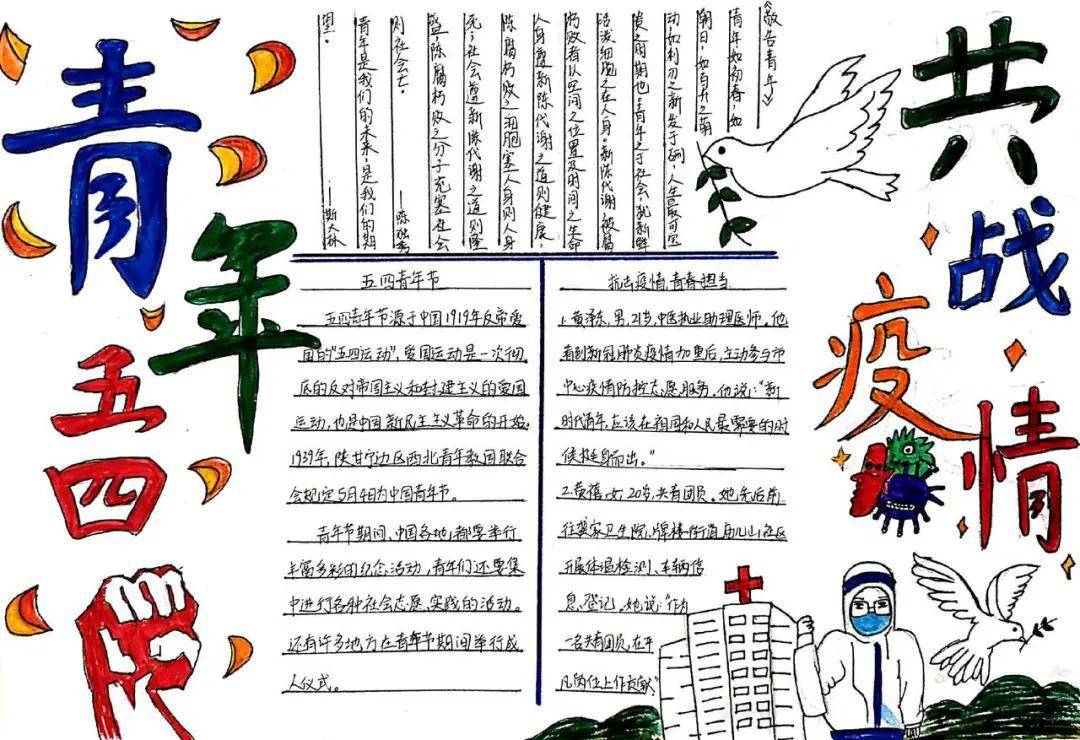 青年
五四
共战
疫情
《敬告青年》
青年如初春,如
朝日,如百卉之萌
动,如利刃之新发于硎,人生最可宝
贵之时期也。青年之于社会,犹新鲜
活泼细胞之在人身。新陈代谢,腐
朽败者以空间之位置及时间之生命
人身遵新陈代谢之道则健康,
陈腐朽败之细胞塞人身则人身
死;社会遵新陈代谢之道则隆
盛,陈腐朽败之分子充塞社会
则社会亡。 ——陈独秀
青年是我们的未来,是我们的期
望。 ——斯大林
五四青年节
五四青年节源于中国1919年反帝爱
国的"五四运动",爱国运动是一次彻
底的反对帝国主义和封建主义的爱国
运动,也是中国新民主主义革命的开始。
1939年,陕甘宁边区西北青年救国联合
会规定5月4日为中国青年节。
青年节期间,中国各地,都要举行
丰富多彩的纪念活动,青年们还要集
中进行各种社会志愿、实践的活动。
还有许多地方在青年节期间举行成
人仪式。
抗击疫情,青春担当
1.黄泽东,男,21岁,中医执业助理医师。他
看到新冠肺炎疫情加重后,主动参与市
中心疫情防控志愿服务。他说:"新
时代青年,应该在祖国和人民最需要的时
候挺身而出。"
2.黄蓓,女,20岁,共青团员。她先后前
往龚家卫生院、牌楼街道社区
开展体温检测、车辆信
息登记。她说:"作为
一名共青团员,在平
凡岗位上作贡献"